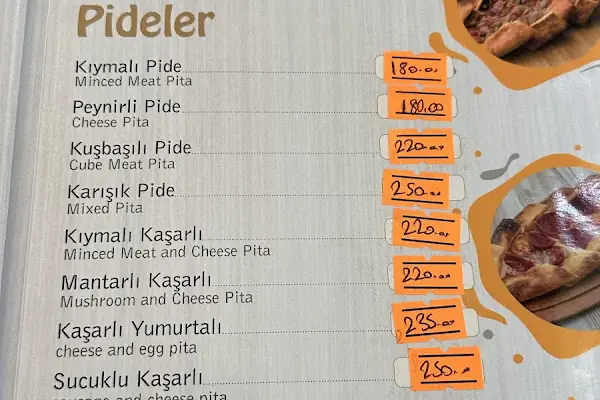 Pideler
Kıymalı Pide 180.00
Minced Meat Pita
Peynirli Pide 180.00
Cheese Pita
Kuşbaşılı Pide 220.00
Cube Meat Pita
Karışık Pide 250.00
Mixed Pita
Kıymalı Kaşarlı 220.00
Minced Meat and Cheese Pita
Mantarlı Kaşarlı 220.00
Mushroom and Cheese Pita
Kaşarlı Yumurtalı 235.00
cheese and egg pita
Sucuklu Kaşarlı 250.00
sausage and cheese pita